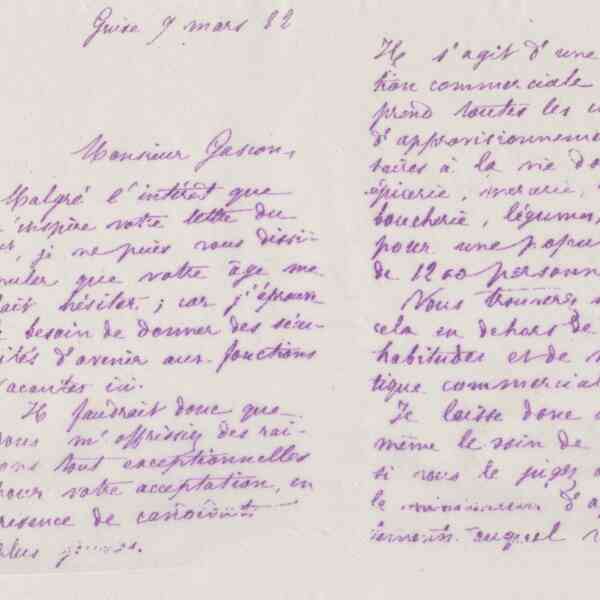 Guise 9 mars 82
Monsieur Gascon,
Malgré l'intérêt que
m'inspire votre lettre du
je ne puis vous dissi-
muler que votre âge me
fait hésiter ; car j'éprouve
le besoin de donner des sécu-
rités d'avenir aux fonctions
vacantes ici.
Il faudrait donc que
vous m'offrissiez des rai-
sons tout exceptionnelles
pour votre acceptation, en
présence de candidats
plus jeunes.
Il s'agit d'une
tion commerciale
prend toutes les
d'approvisionneme
saires à la vie do
épicerie, mercerie,
boucherie, légumes,
pour une popu
de 1200 personn
Vous trouverez
cela en dehors de
habitudes et de
tique commercial
Je laisse donc
même le soin de
si vous le jugez
le minimum d'a
auquel